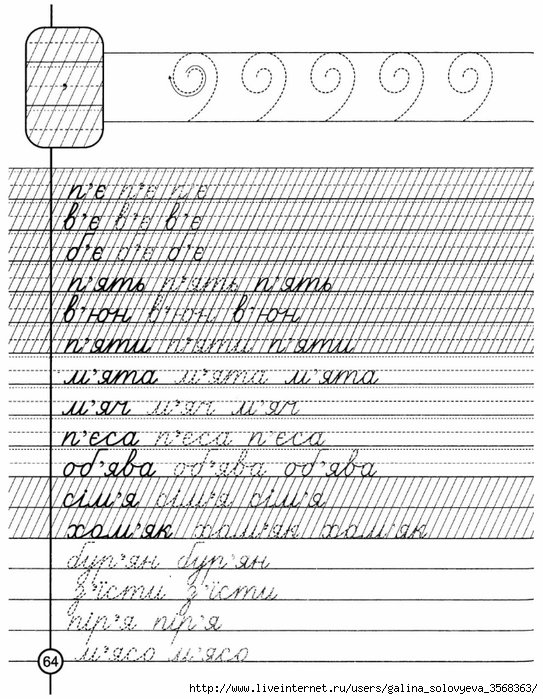 ’
п’є п’є п’є
в’є в’є в’є
б’є б’є б’є
п’ять п’ять п’ять
в’юн в’юн в’юн
п’яти п’яти п’яти
м’ята м’ята м’ята
м’яч м’яч м’яч
п’єса п’єса п’єса
об’ява об’ява об’ява
сім’я сім’я сім’я
хом’як хом’як хом’як
бур’ян бур’ян
з’їсти з’їсти
пір’я пір’я
м’ясо м’ясо
64
http://www.liveinternet.ru/users/galina_solovyeva_3568363/